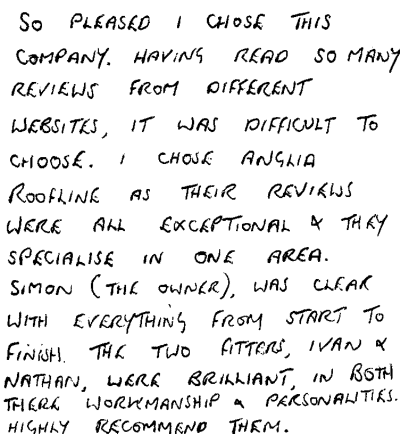 SO PLEASED I CHOSE THIS
COMPANY. HAVING READ SO MANY
REVIEWS FROM DIFFERENT
WEBSITES, IT WAS DIFFICULT TO
CHOOSE. I CHOSE ANGLIA
ROOFLINE AS THEIR REVIEWS
WERE ALL EXCEPTIONAL & THEY
SPECIALISE IN ONE AREA.
SIMON (THE OWNER), WAS CLEAR
WITH EVERYTHING FROM START TO
FINISH. THE TWO FITTERS, IVAN &
NATHAN, WERE BRILLIANT, IN BOTH
THERE WORKMANSHIP & PERSONALITIES.
HIGHLY RECOMMEND THEM.